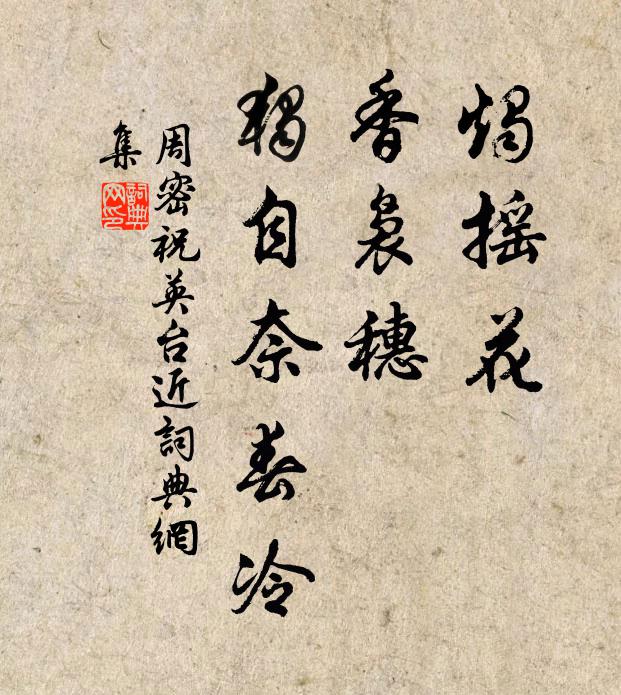 烛摇花
香袅穗
独自奈春冷
周密祝英台近詞典網
集
詞典
网印